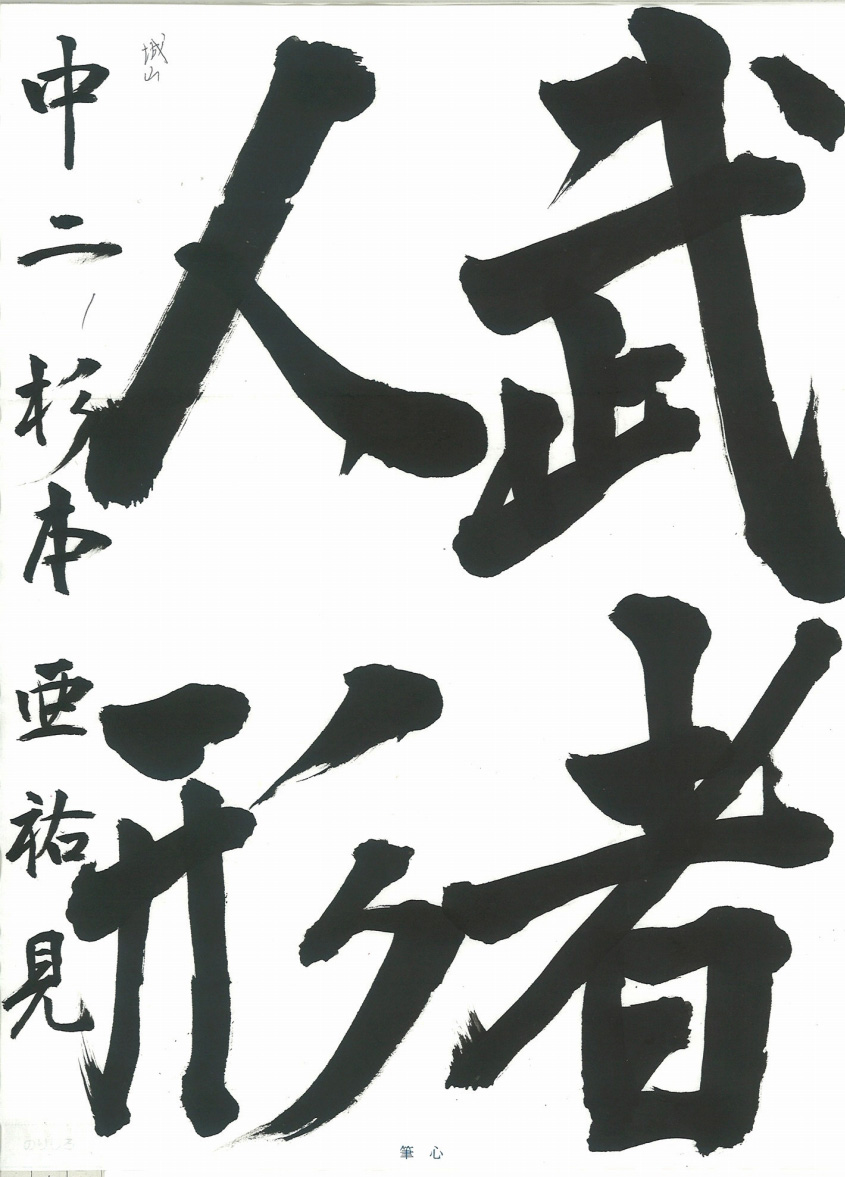 武者
人形
城山
中二 杉本 亜祐見
筆心